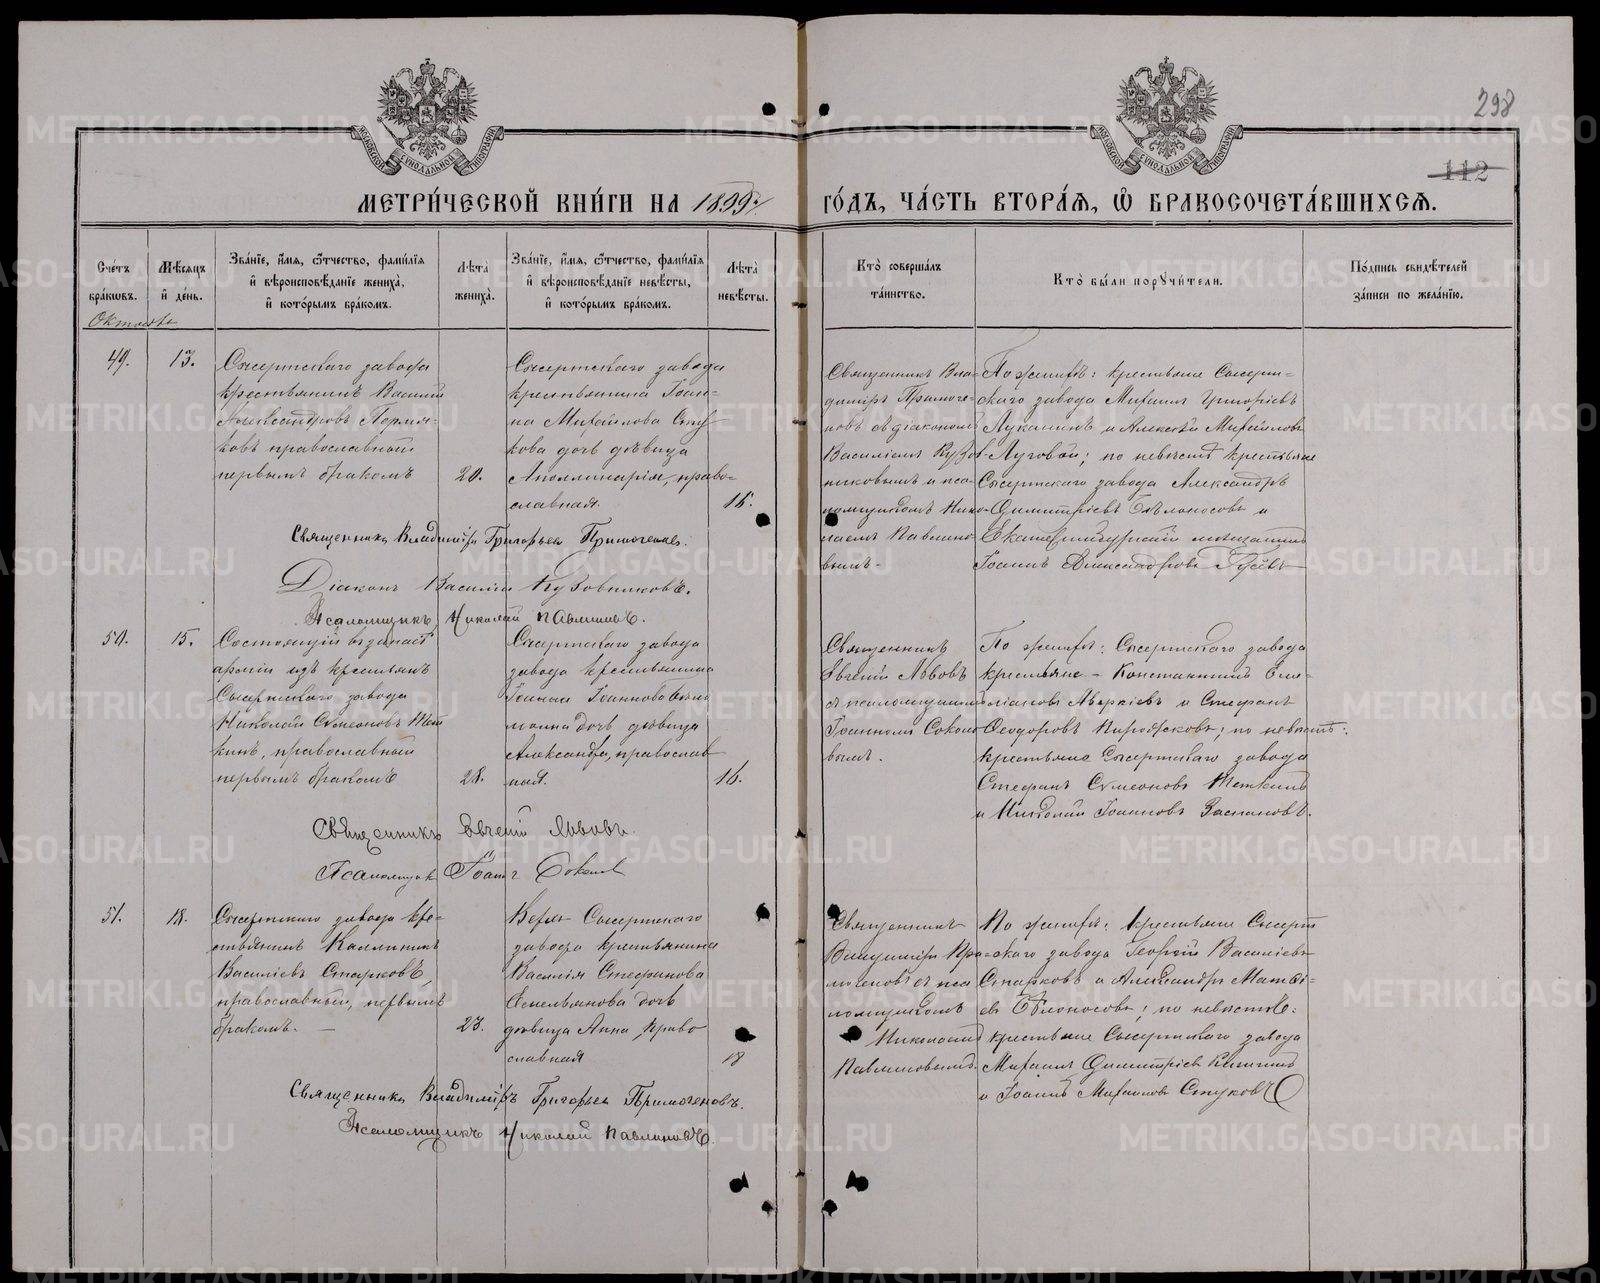 298
112
МЕТРИ́ЧЕСКОЙ КНИ́ГИ НА 1899 г.
ГО́ДЪ, ЧА́СТЬ ВТОРА́Я, Ѡ҆ БРАКОСОЧЕТА́ВШИХСЯ.
Сче́тъ бра́кѡвъ.
Мѣ́сяцъ и҆ де́нь.
Зва́нїе, и҆́мя, ѻ҆́тчество, фамы́лїя
и҆ вѣроисповѣ́данїе жениха̀,
и҆ кото́рымъ бра́комъ.
Лѣ́та жениха̀.
Зва́нїе, и҆́мя, ѻ҆́тчество, фамы́лїя
и҆ вѣроисповѣ́данїе невѣ́сты,
и҆ кото́рымъ бра́комъ.
Лѣ́та невѣ́сты.
Кто̀ соверша́лъ
та́инство.
Кто̀ бы́ли порꙋчи́тели.
По́дпись свидѣ́телей
за́писи по жела́нїю.
Октябрь
49.
13.
Сысертскаго завода
крестьянинъ Василій
Александровъ
православный
первымъ бракомъ
20.
Сысертскаго завода
крестьянина Іоан-
на Михайлова Сту
кова дочь дѣвица
Аполлинарія, право-
славная.
16.
Священникъ Вла-
диміръ Примоге-
новъ съ діакономъ
Василіемъ Кубов-
никовымъ и пса-
ломщикомъ Нико-
лаемъ Павлино-
вымъ.
По женихѣ: крестьяне Сысерт-
скаго завода Михаилъ Григоріевъ
Луканинъ и Алексѣй Михайловъ
Луговой; по невѣстѣ крестьяне
Сысертскаго завода Александръ
Димитріевъ Бѣлоносовъ и
Екатеринбургскій мѣщанинъ
Іоаннъ Александровъ Гусевъ
Священникъ Владиміръ Григорьевъ Примогеновъ.
Діаконъ Василій Кубовниковъ.
Псаломщикъ Николай Павлиновъ.
50.
15.
Состоящій въ запасѣ
арміи изъ крестьянъ
Сысертскаго завода
Николай Сѵмеоновъ Тет
кинъ, православный
первымъ бракомъ
28.
Сысертскаго завода
завода крестьянина
Іоанна Іоаннова
дочь дѣвица
Александра, православ
ная.
16.
Священникъ
Евгеній Львовъ
съ псаломщикомъ
Іоанномъ Соколо
вымъ.
По женихѣ: Сысертскаго завода
крестьяне – Константинъ Еми-
ліановъ Аверкіевъ и Стефанъ
Ѳеодоровъ Пирожковъ; по невѣстѣ:
крестьяне Сысертскаго завода
Стефанъ Сѵмеоновъ Теткинъ
и Николай Іоанновъ Заспановъ.
Священникъ Евгеній Львовъ.
Псаломщикъ Іоаннъ Соколовъ
51.
18.
Сысертскаго завода кре-
стьянинъ Каллиникъ
Василіевъ Старковъ
православный, первымъ
бракомъ. –
23.
Верхъ-Сысертскаго
завода крестьянина
Василія Стефанова
Емельянова дочь
дѣвица Анна, право
славная
18
Священникъ
Владиміръ При-
могеновъ съ пса
ломщикомъ
Николаемъ
Павлиновымъ.
По женихѣ: крестьяне Сысерт
скаго завода Георгій Василіевъ
Старковъ и Александръ Матѳі-
евъ Бѣлоносовъ; по невѣстѣ:
крестьяне Сысертскаго завода
Михаилъ Димитріевъ
и Іоаннъ Михайловъ Стуковъ
Священникъ Владиміръ Григорьевъ Примогеновъ.
Псаломщикъ Николай Павлиновъ.
METRIKI.GASO-URAL.RU